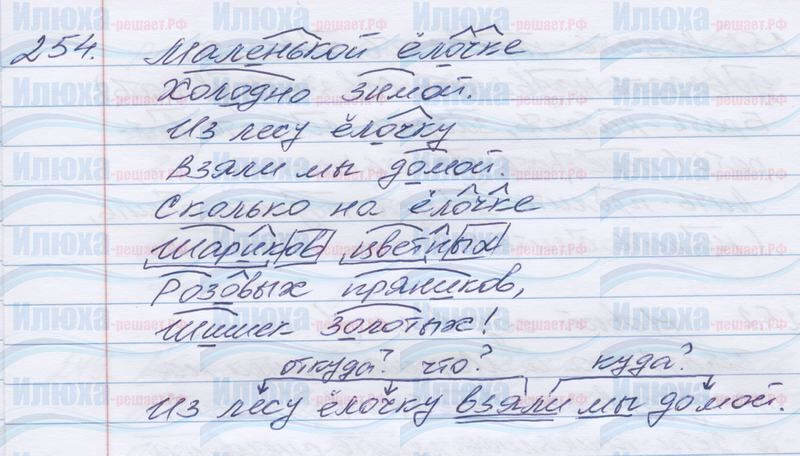 254. Маленькой ёлочке
Холодно зимой.
Из лесу ёлочку
Взяли мы домой.
Сколько на ёлочке
Шариков цветных
Розовых пряников,
Шишек золотых!
откуда? что? куда?
Из лесу ёлочку взяли мы домой.